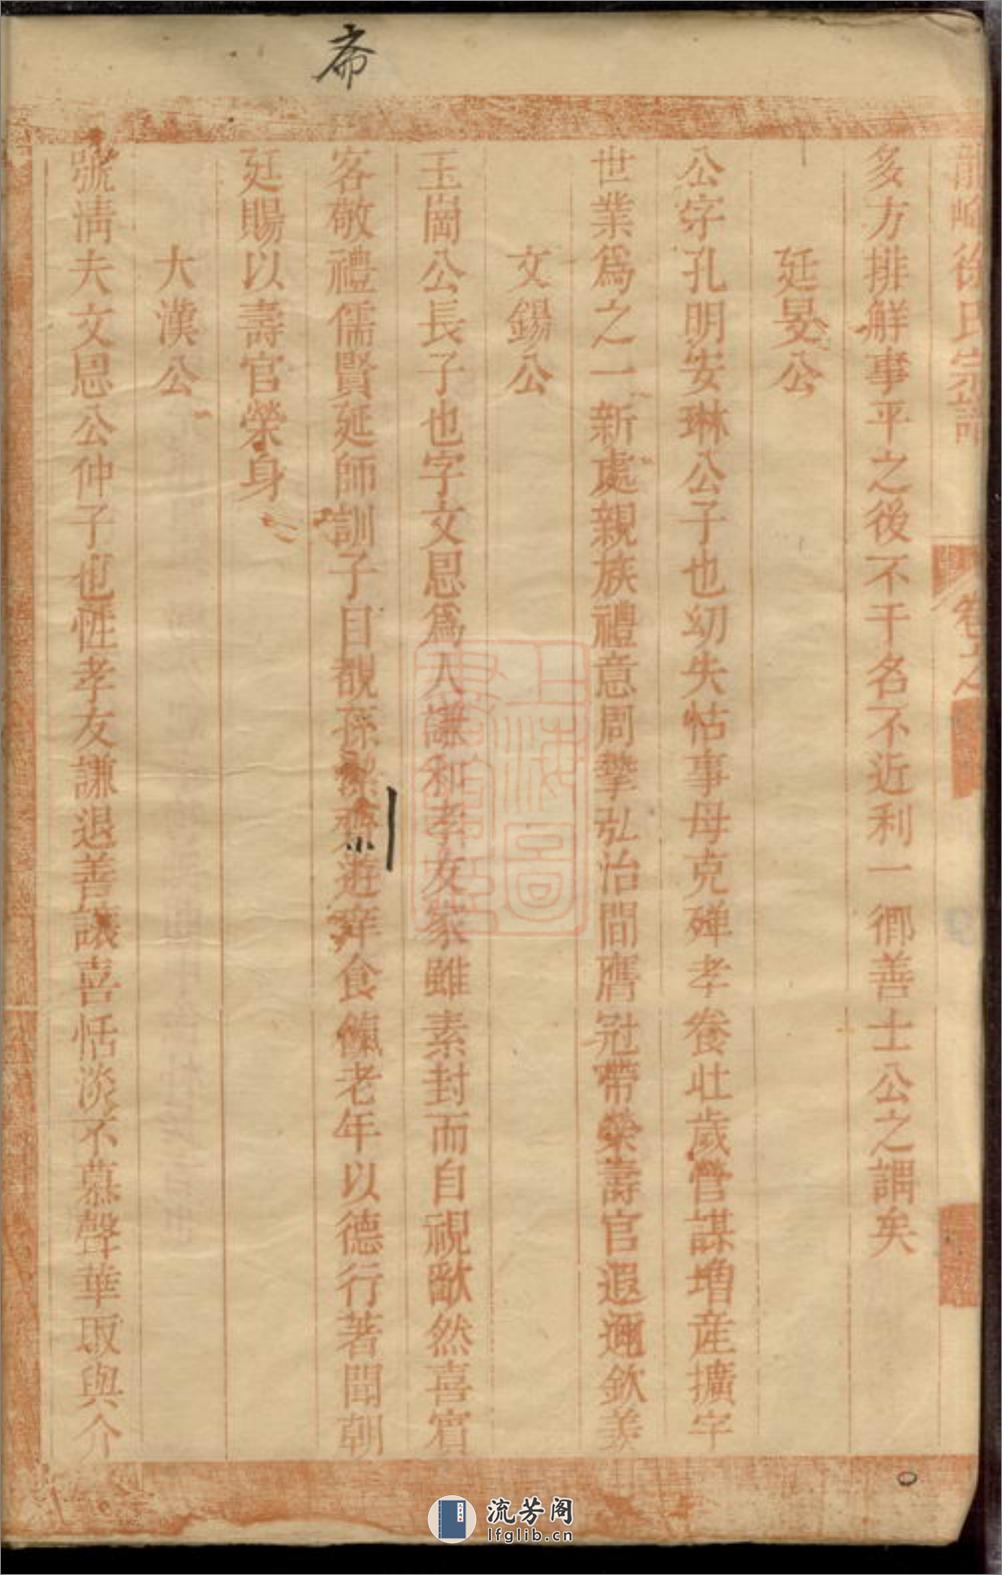 徐氏宗譜
卷之
多方排解事平之後不干名不近利一鄉善士公之謂矣
廷晏公
公字孔明安琳公子也幼失怙事母克殫孝養壯歲營謀增產擴宇
世業為之一新處親族禮意周摯弘治間膺冠帶榮壽官遐邇欽羨
文錫公
玉崗公長子也字文思為人謙和孝友家雖素封而自視歉然喜賓
客敬禮儒賢延師訓子目覩孫遊庠食餼老年以德行著聞朝
廷賜以壽官榮身
大漢公
號清夫文思公仲子也性孝友謙退善讓喜恬淡不慕聲華取與介
斋
上海圖
流芳阁
lfglib.cn